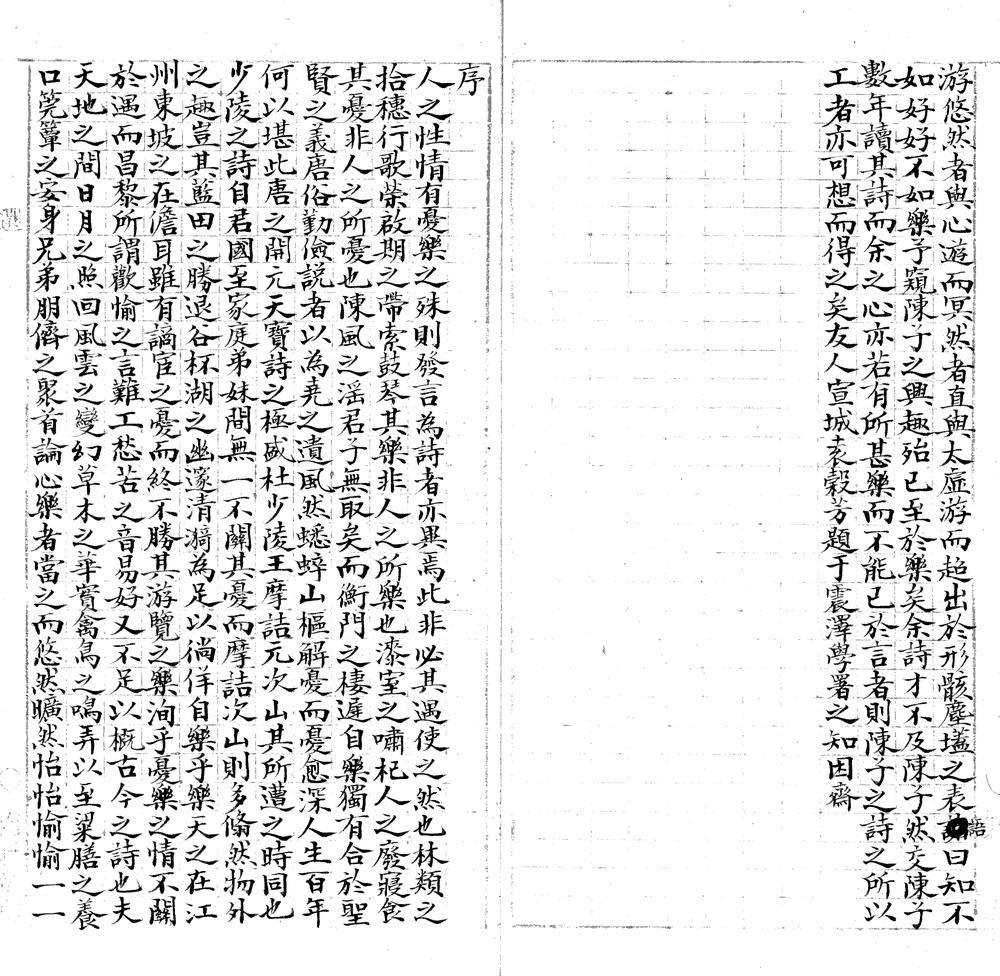 游悠然者與心遊而冥然者直與太虛游而超出於形骸塵壒之表語曰知不
如好好不如樂予窺陳子之興趣殆已至於樂矣余詩才不及陳子然交陳子
數年讀其詩而余之心亦若有所甚樂而不能已於言者則陳子之詩之所以
工者亦可想而得之矣友人宣城袁穀芳題于震澤學署之知困齋
序
人之性情有憂樂之殊則發言為詩者亦異焉此非必其遇使之然也林類之
拾穗行歌榮啟期之帶索鼓琴其樂非人之所樂也漆室之嘯杞人之廢寢食
其憂非人之所憂也陳風之滛君子無取矣而衡門之棲遲自樂獨有合於聖
賢之義唐俗勤儉説者以為堯之遺風然蟋蟀山樞解憂而憂愈深人生百年
何以堪此唐之開元天寶詩之極盛杜少陵王摩詰元次山其所遭之時同也
少陵之詩自君國至家庭弟妹間無一不關其憂而摩詰次山則多翛然物外
之趣豈其藍田之勝退谷杯湖之幽邃清漪為足以倘佯自樂乎樂天之在江
州東坡之在儋耳雖有謫宦之憂而終不勝其游覽之樂洵乎憂樂之情不關
於遇而昌黎所謂歡愉之言難工愁苦之音易好又不足以概古今之詩也夫
天地之間日月之照回風雲之變幻草木之華實禽鳥之鳴弄以至粱膳之養
口筦簟之安身兄弟朋儕之聚首論心樂者當之而悠然曠然怡怡愉愉一一